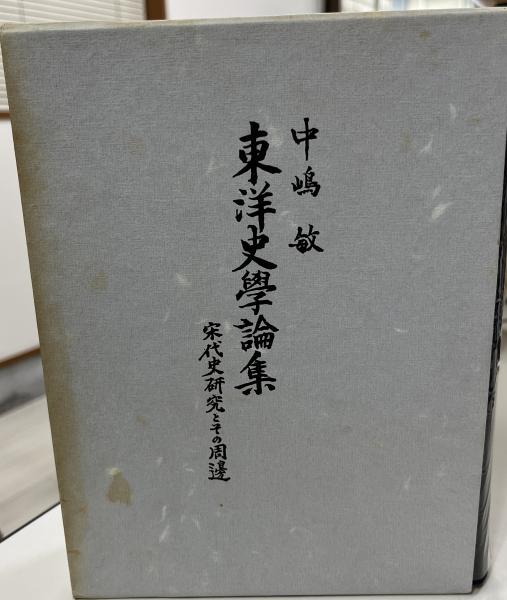 中嶋敏
東洋史學論集
宋代史研究とその周邊